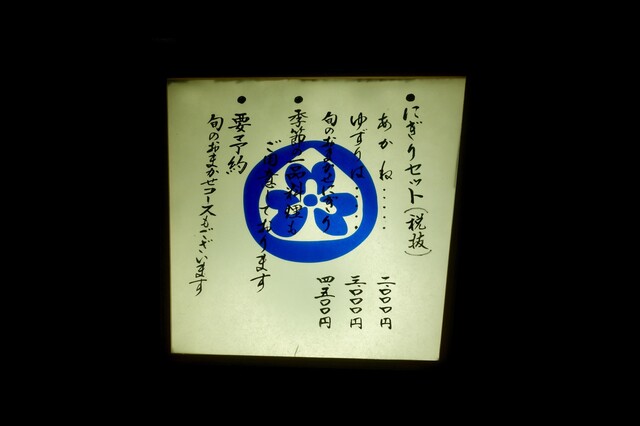 ●にぎりセット(税抜)
あかね・・・・・ 二、〇〇〇円
ゆずりは・・・ 三、〇〇〇円
旬のおまかせにぎり 四、五〇〇円
●季節の一品料理も
ご用意しております
●要予約
旬のおまかせコースもございます